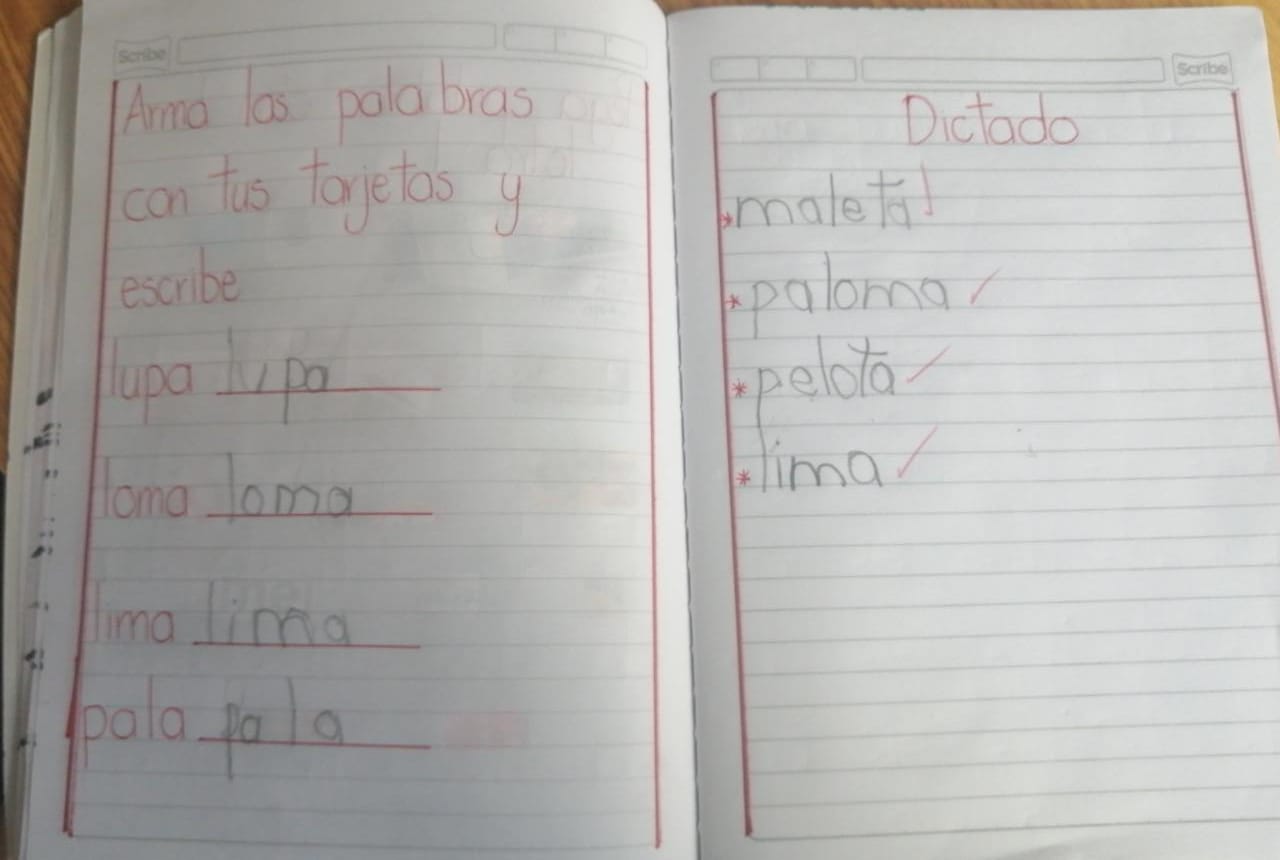 Scribe
Arma las palabras
con tus tarjetas y
escribe
lupa lupa
loma loma
lima lima
pala pala
Scribe
Dictado
*maleta
*paloma
*pelota
*lima